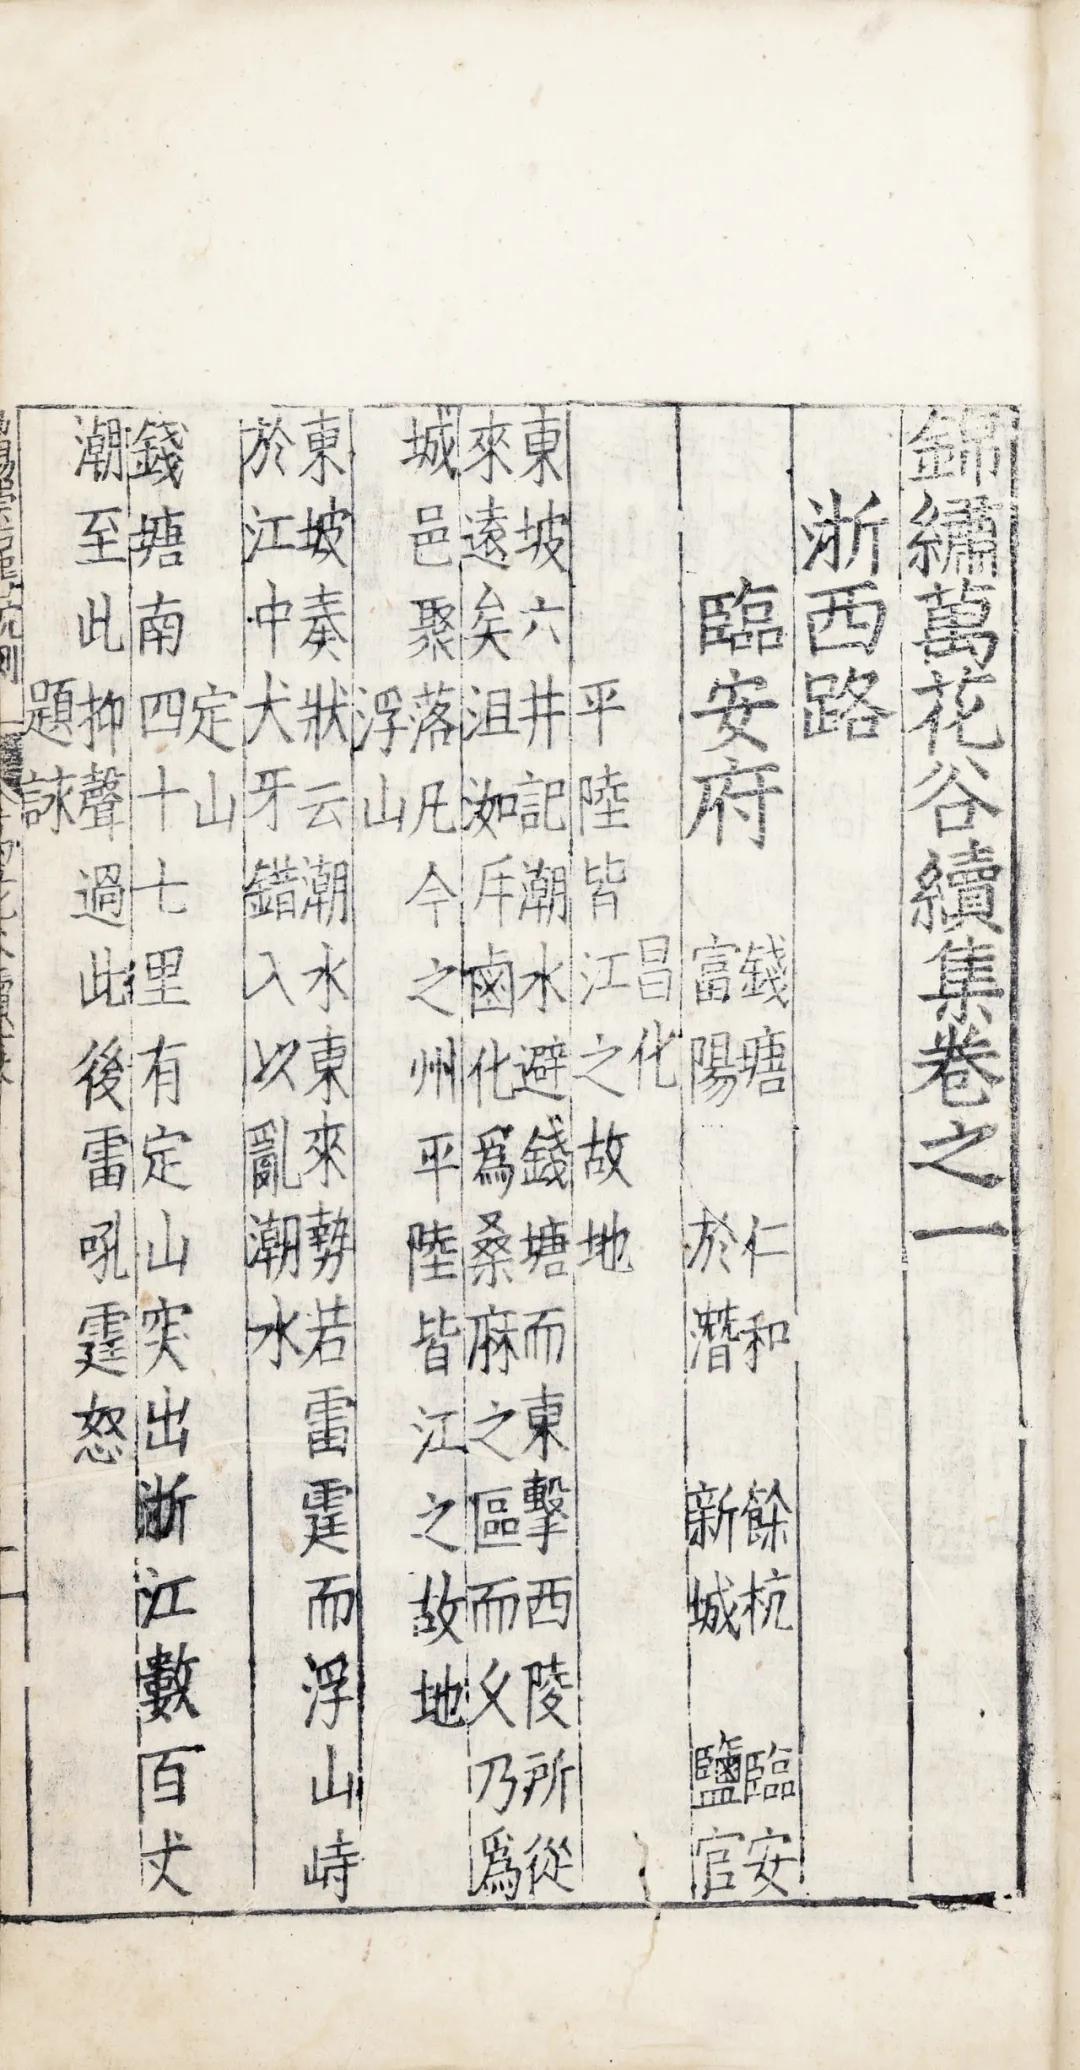 錦繡萬花谷續集卷之一
浙西路
臨安府
錢塘 仁和 餘杭 臨安
富陽 於潛 新城 鹽官
昌化
平陸皆江之故地
東坡六井記潮水避錢塘而東擊西陵所從
來遠矣沮洳斥鹵化爲桑麻之區而乆乃爲
城邑聚落凡今之州平陸皆江之故地
浮山
東坡奏狀云潮水東來勢若雷霆而浮山峙
於江中犬牙錯入以亂潮水
定山
錢塘南四十七里有定山突出浙江數百丈
潮至此抑聲過此後雷吼霆怒
題詠